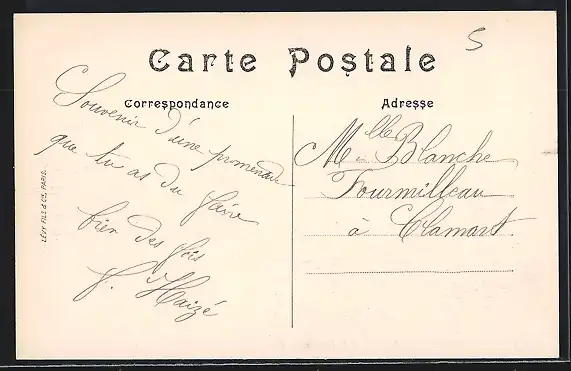 5
Carte Postale
Correspondance
Souvenir d'une promenade
que tu as du faire
bien des fois
LÉVY FILS & Cie, PARIS.
Adresse
Mlle Blanche
Fourmilleau
à Clamart.